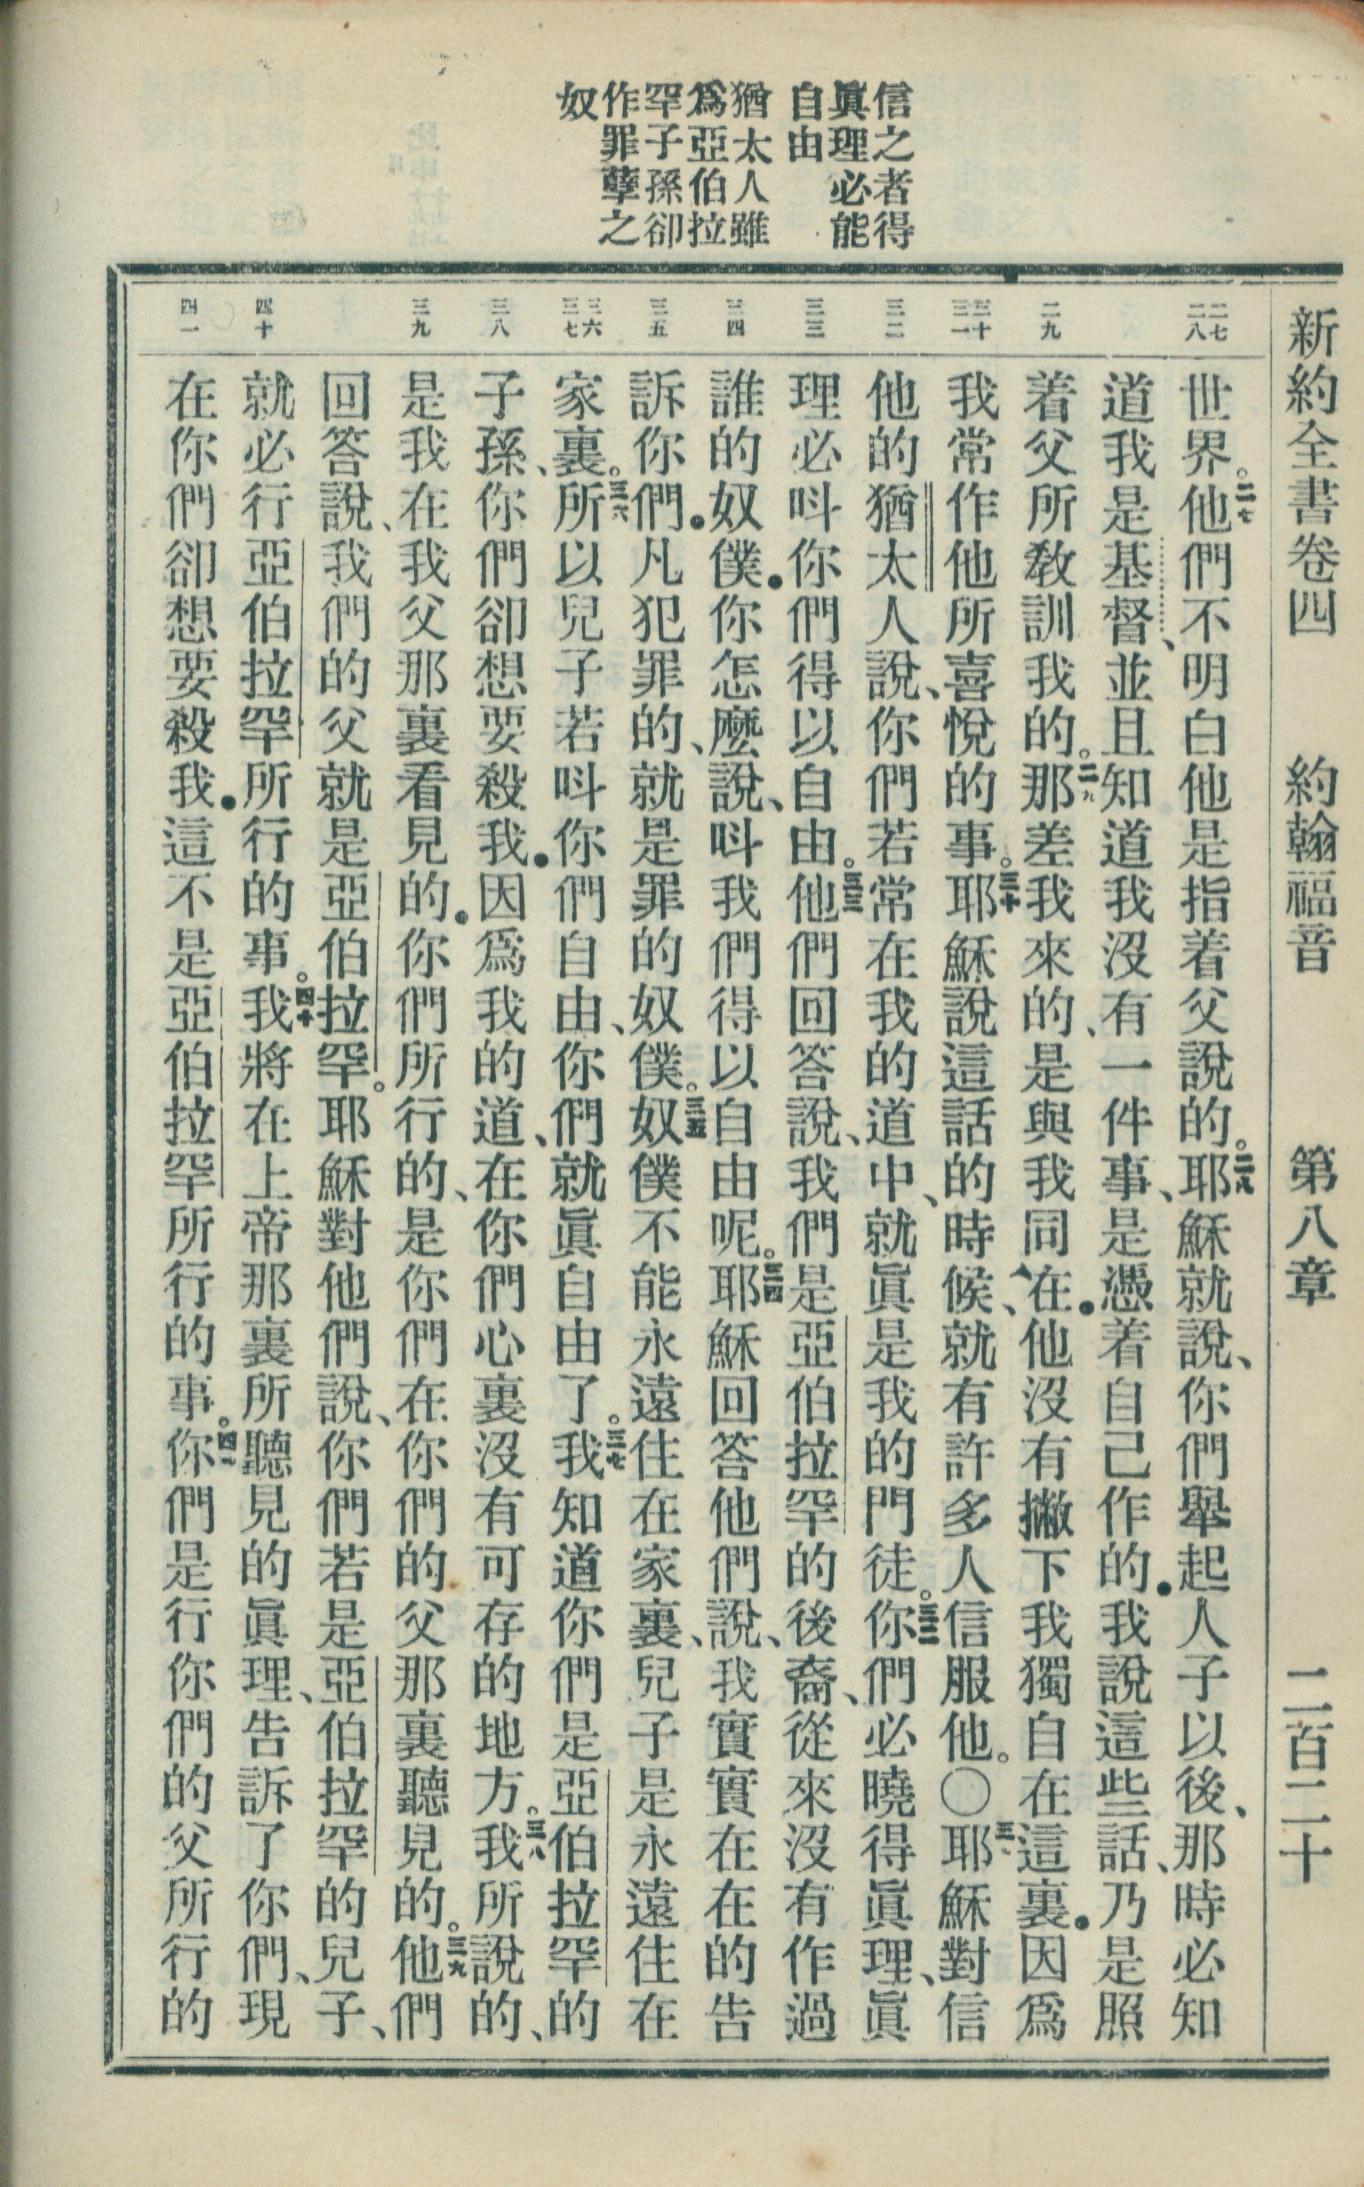 新約全書卷四　約翰福音　第八章　二百二十
信之者得
眞理必能
自由
猶太人雖
爲亞伯拉
罕子孫卻
作罪孽之
奴
二七
二八
二九
三十
三一
三二
三三
三四
三五
三六
三七
三八
三九
四十
四一
世界。二七他們不明白他是指着父說的。二八耶穌就說、你們舉起人子以後、那時必知
道我是基督、並且知道我沒有一件事、是憑着自己作的．我說這些話、乃是照
着父所敎訓我的。二九那差我來的、是與我同在．他沒有撇下我獨自在這裏．因爲
我常作他所喜悅的事。三十耶穌說這話的時候、就有許多人信服他。〇三一耶穌對信
他的猶太人說、你們若常在我的道中、就眞是我的門徒。三二你們必曉得眞理、眞
理必呌你們得以自由。三三他們回答說、我們是亞伯拉罕的後裔、從來沒有作過
誰的奴僕．你怎麼說、呌我們得以自由呢。三四耶穌回答他們說、我實實在在的告
訴你們．凡犯罪的、就是罪的奴僕。三五奴僕不能永遠住在家裏、兒子是永遠住在
家裏。三六所以兒子若呌你們自由、你們就眞自由了。三七我知道你們是亞伯拉罕的
子孫、你們卻想要殺我．因爲我的道、在你們心裏沒有可存的地方。三八我所說的、
是我在我父那裏看見的．你們所行的、是你們在你們的父那裏聽見的。三九他們
回答說、我們的父就是亞伯拉罕。耶穌對他們說、你們若是亞伯拉罕的兒子、
就必行亞伯拉罕所行的事。四十我將在上帝那裏所聽見的眞理、告訴了你們、現
在你們卻想要殺我．這不是亞伯拉罕所行的事。四一你們是行你們的父所行的